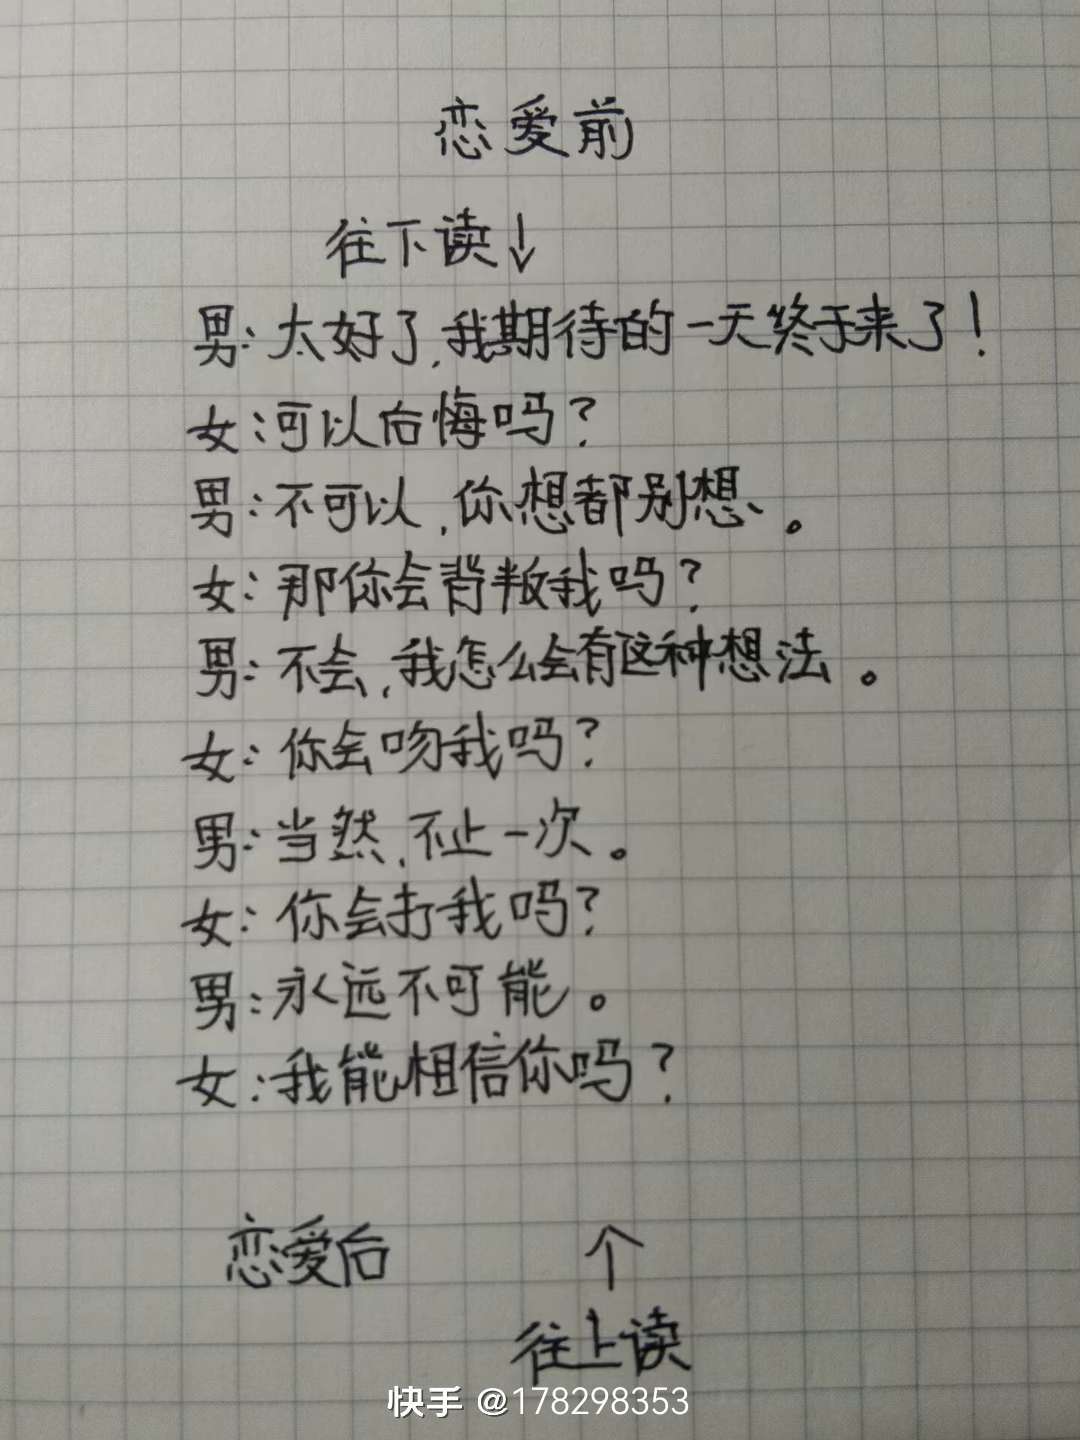 恋爱前
往下读↓
男:太好了,我期待的一天终于来了!
女:可以后悔吗?
男:不可以,你想都别想。
女:那你会背叛我吗?
男:不会,我怎么会有这种想法。
女:你会吻我吗?
男:当然,不止一次。
女:你会打我吗?
男:永远不可能。
女:我能相信你吗?
恋爱后 ↑
往上读
快手 @178298353